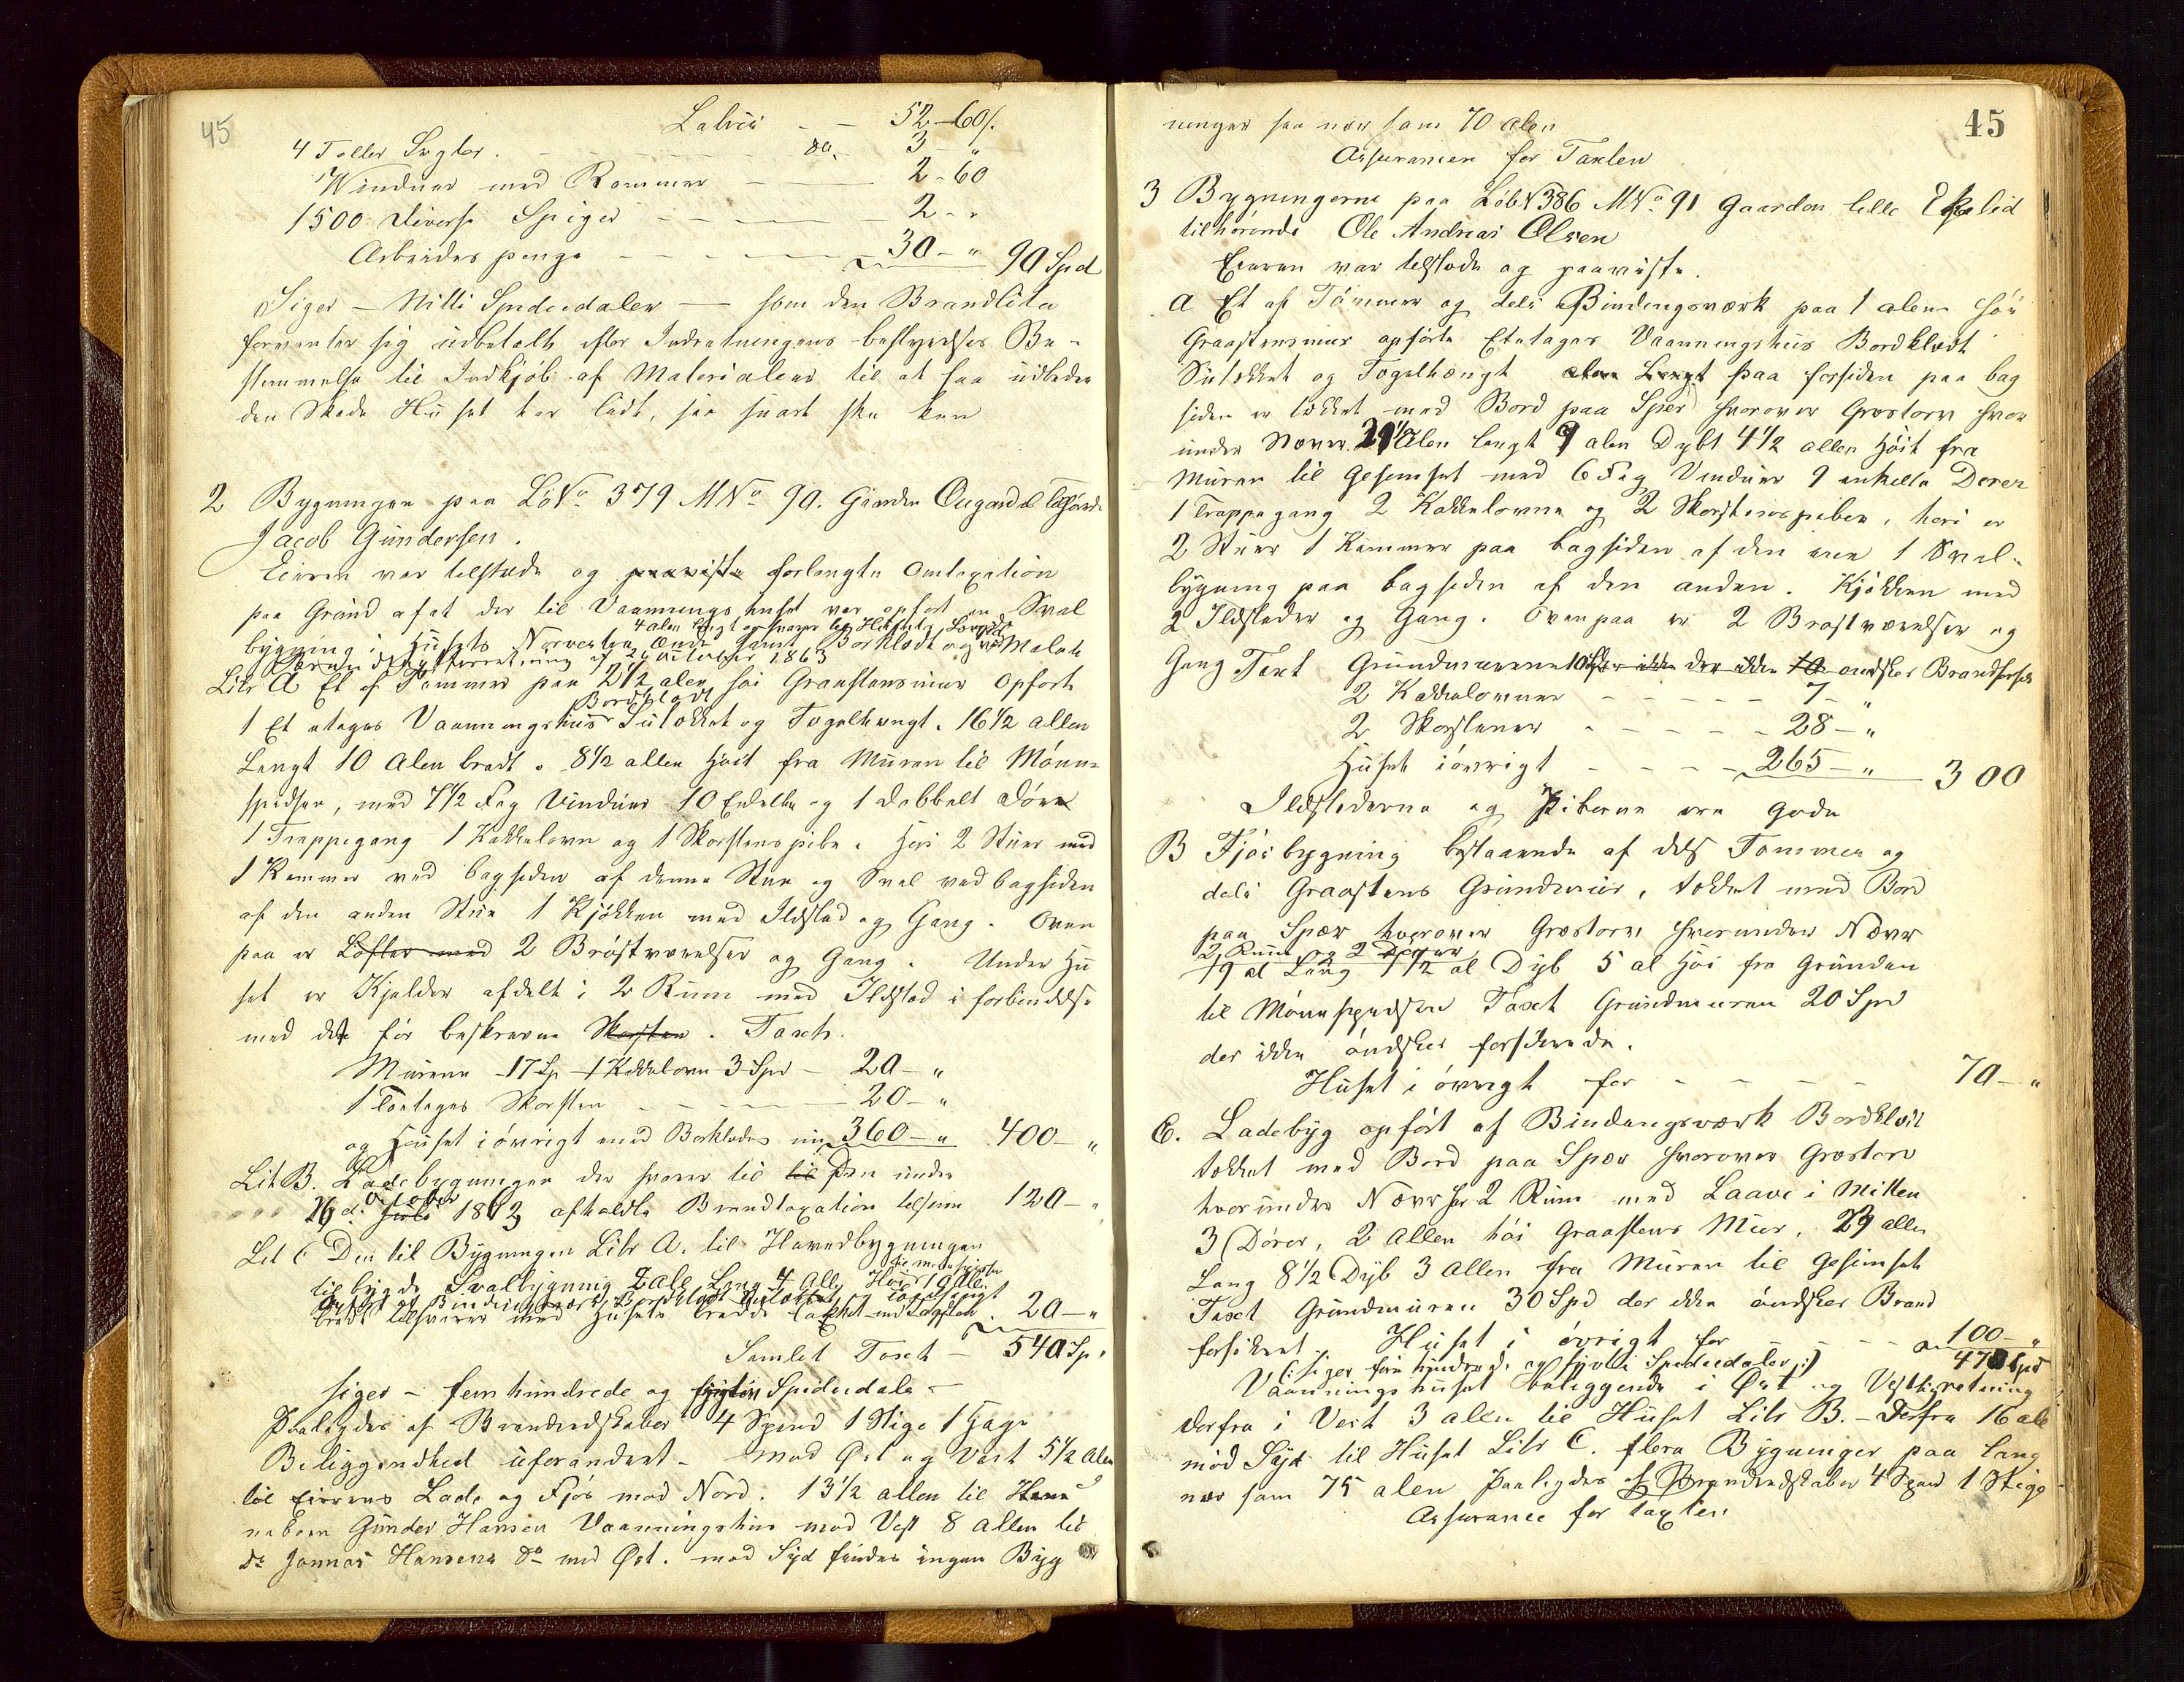 45
Latus - - 52-60/.
4 Toller Sugler. - - - - - do. 3 - "
1 Winduer med Rammer - - 2-60
1500 diverse Spiger - - - 2 - "
Arbeides penge - - - - - 30 - " 90 Spd
Siger - Nitti Speciedaler - som den Brandlidte
forventer sig udbetalt efter Indretningens bestyrelses Be-
stemmelse til Indkjöb af Materialier til at faa udbedre
den Skade Huset har lidt, saa snart ske kan
2 Bygningen paa LöNo 379 MNo 90. Gaarden Øugarden Tilhörende
Jacob Gundersen.
Eieren var tilstede og paaviste forlangte Omtaxation
paa Grund af at der til Vaaningshuset var opfört en Sval
4 alen Langt og svarer til Husets Bredde
bygning i Husets Nørvestre Ende samt Bordklædt og Malet
Brandforretning af 26 October 1863
Litr A Et af Tömmer paa 2 1/2 alen höi Graastensmur Opfört
Bordklædt
1 Et etages Vaaningshus Sutækket og Tegelhængt. 16 1/2 allen
Langt 10 Alen bredt. 8 1/2 allen Höit fra Muren til Mönn-
spidsen, med 7 1/2 Fag Vinduer 10 Enkelte og 1 dobbelt Dörr
1 Trappegang 1 Kakkelovn og 1 Skorstenspibe. Heri 2 Stuer med
1 Kammer ved bagsiden af denne Stue og Sval ved bagsiden
af den anden Stue 1 Kjökken med Ildsted og Gang. Oven
paa er Lofter med 2 Bröstværelser og Gang. Under Hu
set er Kjelder afdelt i 2 Rum med Ildsted i forbindelse
med det för beskrevne Skorsten. Taxt.
Murene - 17 Sp - 1 Kakkelovn 3 Spd - 20 - "
1 Toetages Skorsten - - - - 20 - "
og Huset iövrigt med Bordklædning 360 - " 400 - "
Lit B. Ladebygningen der svarer til til Den under
October
26 d. Juli 1863 afholdte Brandtaxation tilsum 120 - "
Lit C Den til Bygningen Litr A. til Hovedbygningen
til mönespidsen
tilbygde Svalbygning 2 Ale Lang 4 All. Höi 10 Ale.
opfört af Bindingsværk Bordklædt Sutækket og tegelhængt
bredt tilsvarer med Husets bredde taxeret med Tagsten - 20 - "
Samlet Taxt - 540 Sp.
siger - fem hundrede og fyrgetiv Speciedaler -
Paalegdes af Brandredskaber 4 Spand 1 Stige 1 Hage
Beliggenhed uforandert - mod Öst og Vest 5 1/2 Alen
til Eierens Lade og Fjös mod Nord. 13 1/2 allen til Hans
naboen Gunder Hansen Vaaningshus mod Vest 8 allen til
Do Jonnas Hansens do mod Øst. mod Syd findes ingen Byg
45
ninger saa nær som 70 alen
Assurancen for Taxten
3 Bygningerne paa LöbN 386 MNo 91 Gaarden lille Ekelid
tilhörende Ole Andreas Olsen
Eieren var tilstede og paaviste.
A Et af Tömmer og dels Bindingsværk paa 1 alen höi
Graastensmur opförte Etetages Vaaningshus Bordklædt
Sutækket og Tegelhængt alen Langt paa forsiden paa bag
siden er tækket med Bord paa Sper hvorover Græstorv hvor
under Næver. 21 1/2 Alen langt 9 alen Dybt 4 1/2 allen Höit fra
Muren til Gesimset med 6 Fag Vinduer 9 enkelte Dører
1 Trappegang 2 Kakkelovne og 2 Skorstenspiber, heri er
2 Stuer 1 Kammer paa bagsiden af den ene 1 Sval-
bygning paa bagsiden af den anden. Kjökken med
2 Ildsteder og Gang. Ovenpaa er 2 Brøstværelser og
Gang Taxt Grundmurene 10 Sp der ikke der ikke 10 ønskes Brandforsik
2 Kakkelovner - - - - - 7 - "
2 Skorstener - - - - - 28 - "
Huset iövrigt - - - - 265 - " 300
Ildstederne og Piberne ere gode
B Fjösbygning bestaaende af dels Tömmer og
dels Graastens Grundmur, tækket med Bord
paa Spær hvorover Græstorv hvorunder Næver
2 Rum og 2 Dörrer
19 al Lang 7 1/2 al Dyb 5 al Höi fra Grunden
til Mönnspidsen Taxt Grundmuren 20 Spd
der ikke öndskes forsikrede.
Huset i övrigt for - - - - 70 - "
C. Ladebyg opfört af Bindingsværk Bordklædt
tækket med Bord paa Spær hvorover Græstorv
hvorunder Næver har 2 Rum med Laave i Mitten
3 Dörer, 2 Allen höi Graastens Mur, 29 allen
Lang 8 1/2 Dyb 3 Allen fra Muren til Gesimset
Taxt Grundmuren 30 Spd der ikke öndskes Brand
forsikret. Huset i övrigt for - - - - 100 - "
(: siger fire hundrede og sytti Speciedaler :) 470 Spd
Vaaningshuset beliggende i Øst og Vestlig retning
derfra i Vest 3 allen til Huset Litr B. - Derfra 16 ale
mod Syd til Huset Litr C. flere Bygninger paa lang
nær som 75 alen Paalegdes af Brandredskaber 4 Spand 1 Stige
Assurance for taxten